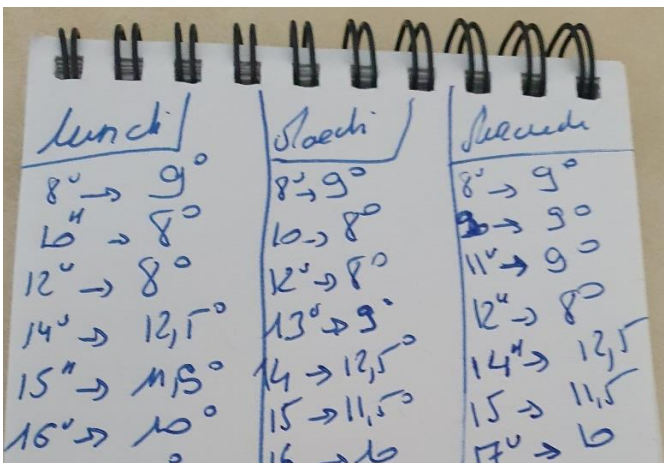 lundi
8h → 9°
10H → 8°
12h → 8°
14h → 12,5°
15H → 11,5°
16h → 10°
Mardi
8h → 9°
10 → 8°
12h → 8°
13h → 9°
14 → 12,5°
15 → 11,5°
16 → 10
8h → 9°
→ 9°
11h → 9°
12h → 8°
14H → 12,5
15 → 11,5
17h → 10